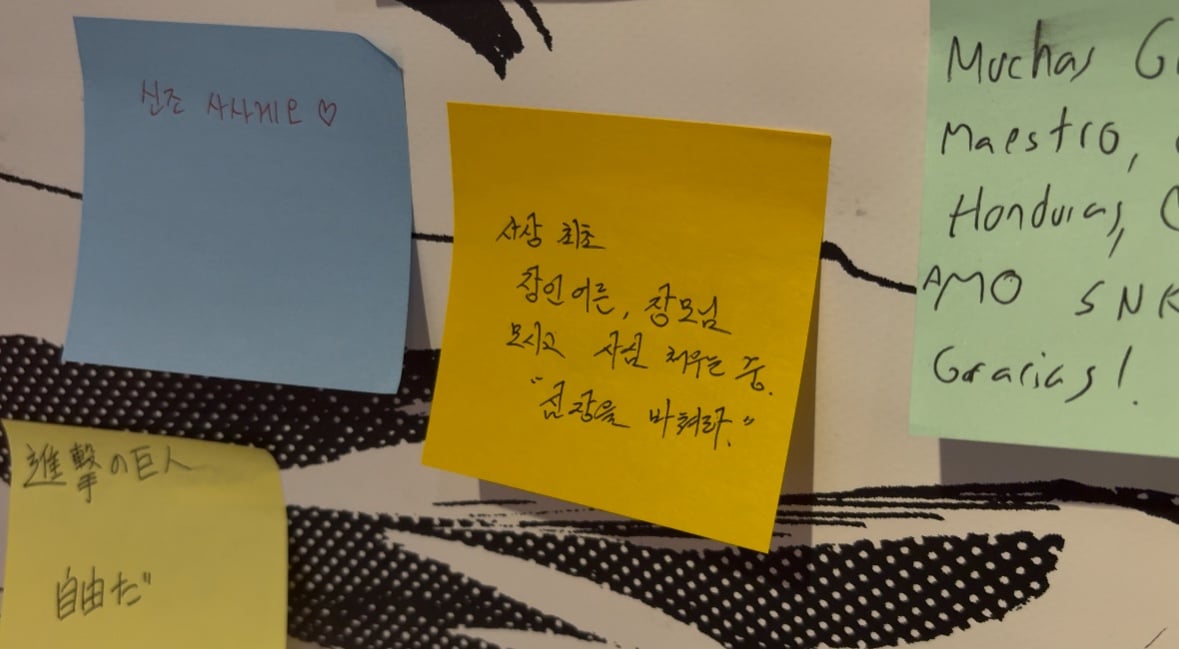 신조 사사게오 ♡
사상 최초
장인어른, 장모님
모시고 사심 채우는 중.
"심장을 바쳐라."
Muchas
Maestro,
Honduras,
AMO SNK
Gracias!
進撃の巨人
自由だ"